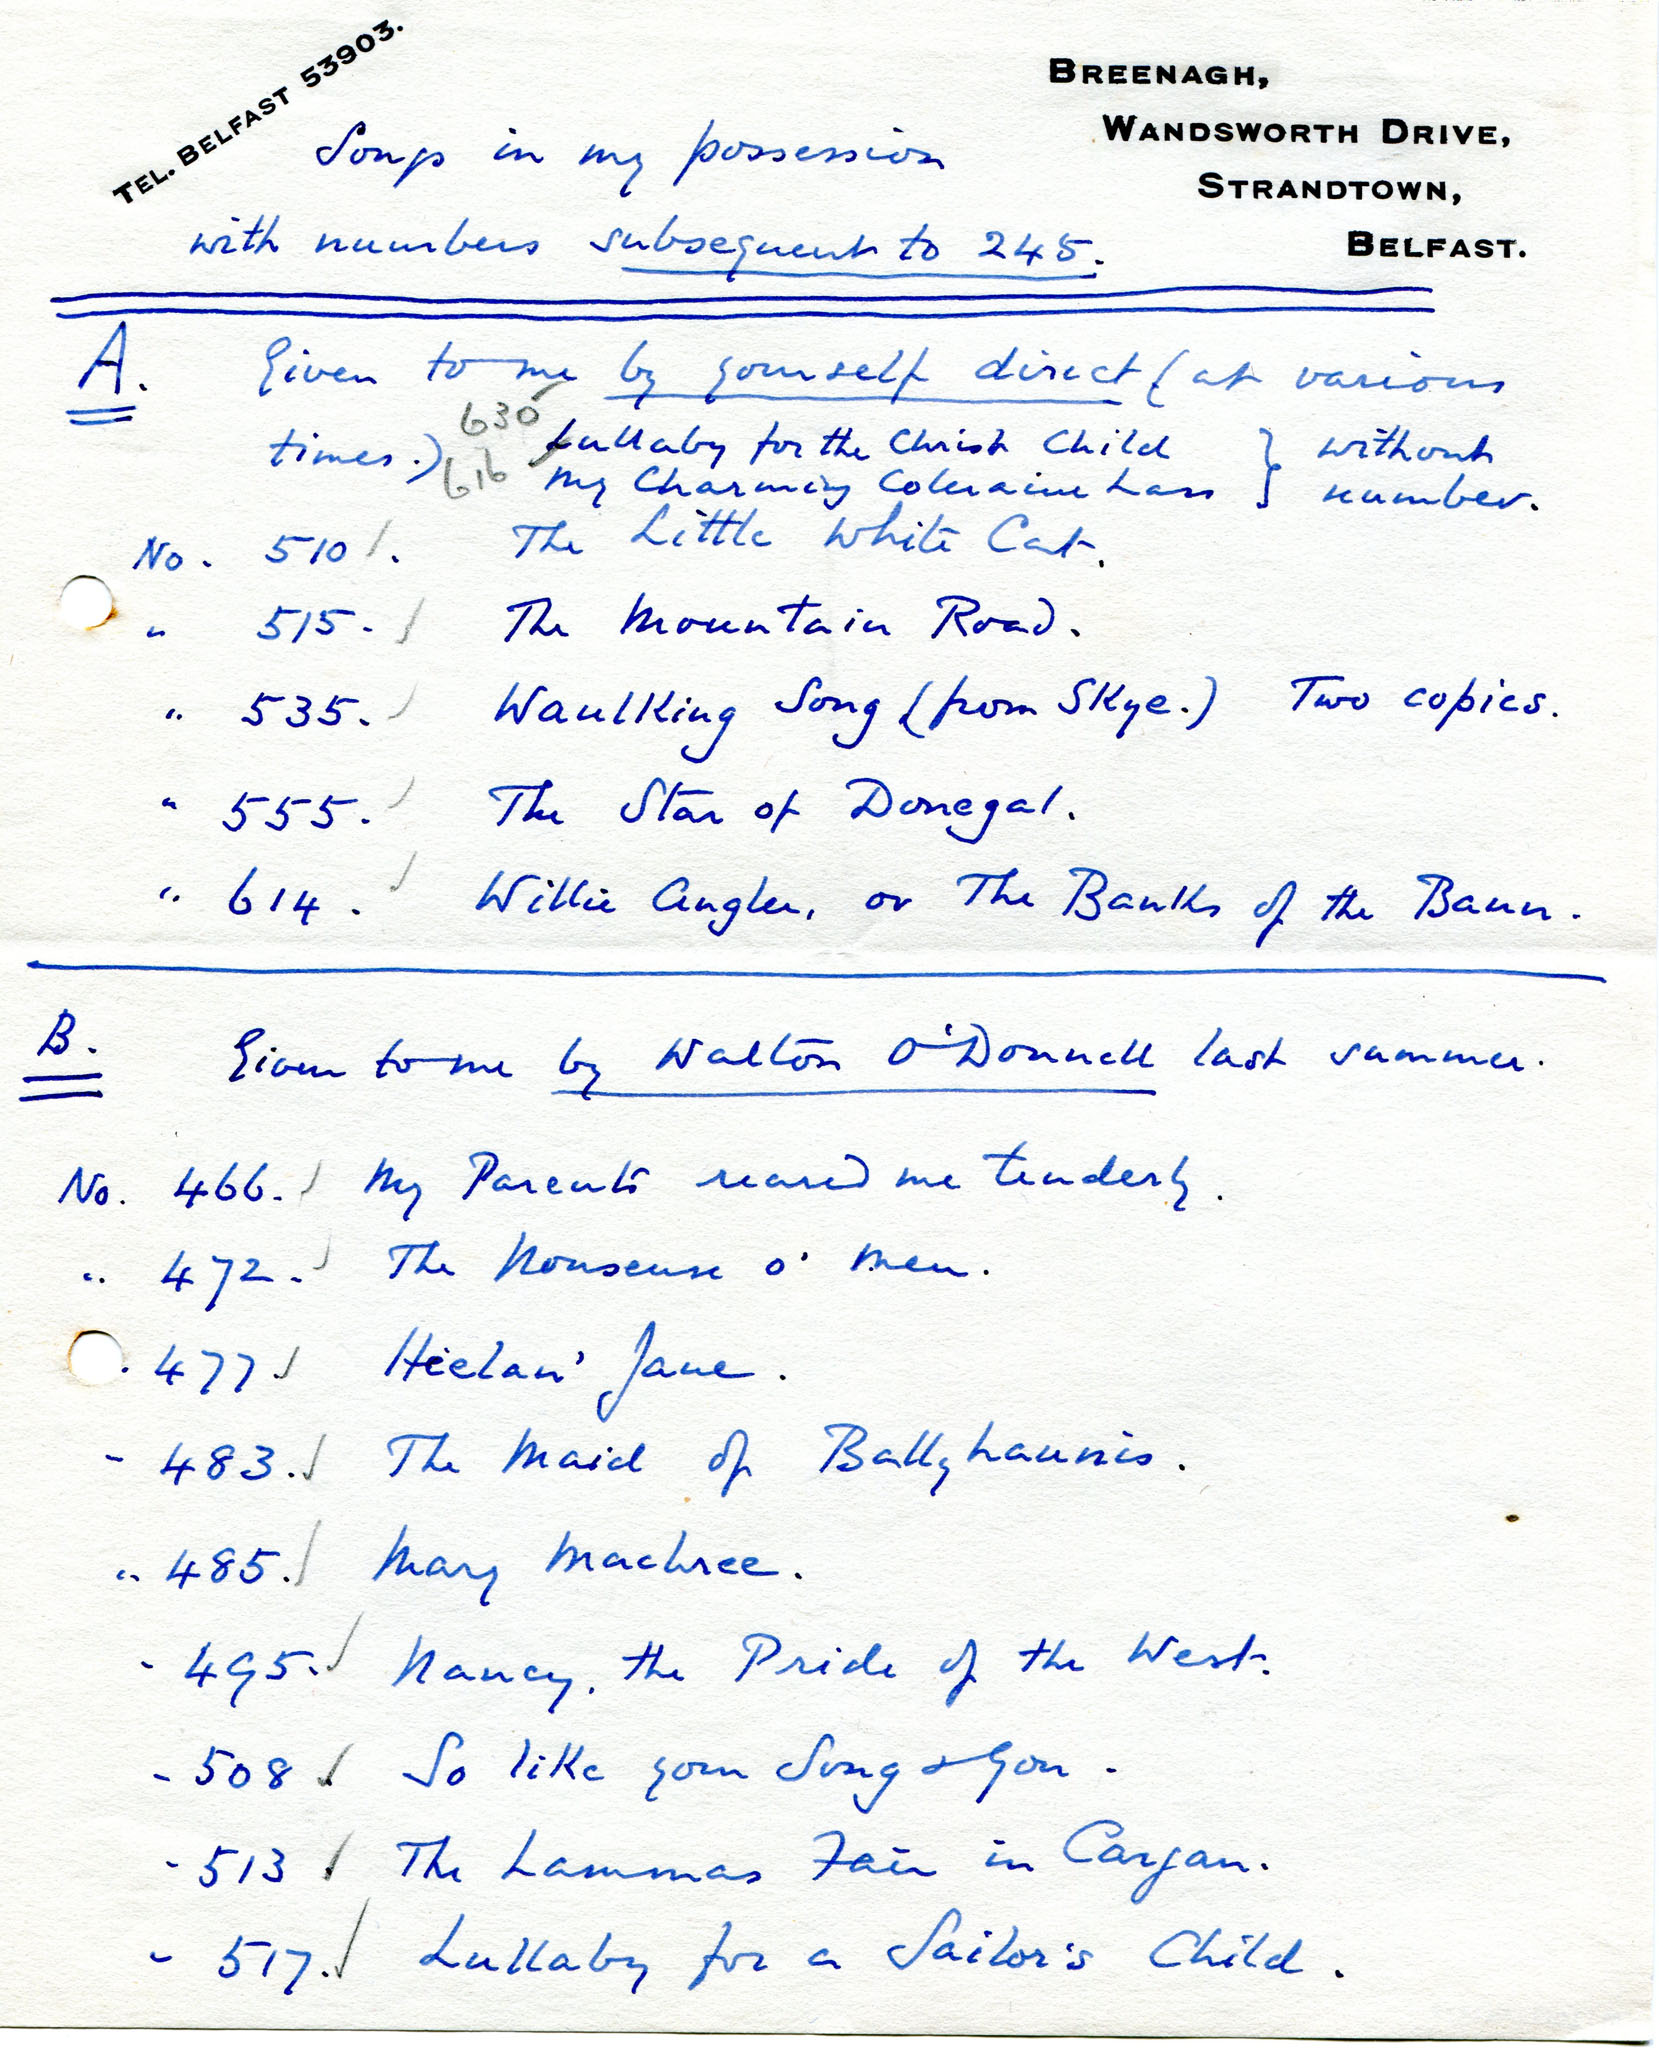 TEL. BELFAST 53903.
BREENAGH,
WANDSWORTH DRIVE,
STRANDTOWN,
BELFAST.
Songs in my possession
with numbers subsequent to 245.
A. Given to me by yourself direct (at various
times.)
630 Lullaby for the Christ Child } without
616 My Charming Coleraine Lass } number.
No. 510. The Little White Cat.
" 515. The Mountain Road.
" 535. Waulking Song (from Skye.) Two copies.
" 555. The Star of Donegal.
" 614. Willie Angler, or The Banks of the Bann.
B. Given to me by Walton O'Donnell last summer.
No. 466. My Parents reared me tenderly.
" 472. The Nonsense o' Men.
. 477 Hielan' Jane.
" 483. The Maid of Ballyhaunis.
" 485. Mary Machree.
" 495. Nancy, the Pride of the West.
" 508 So like your Song & You.
" 513 The Lammas Fair in Cargan.
" 517. Lullaby for a Sailor's Child.